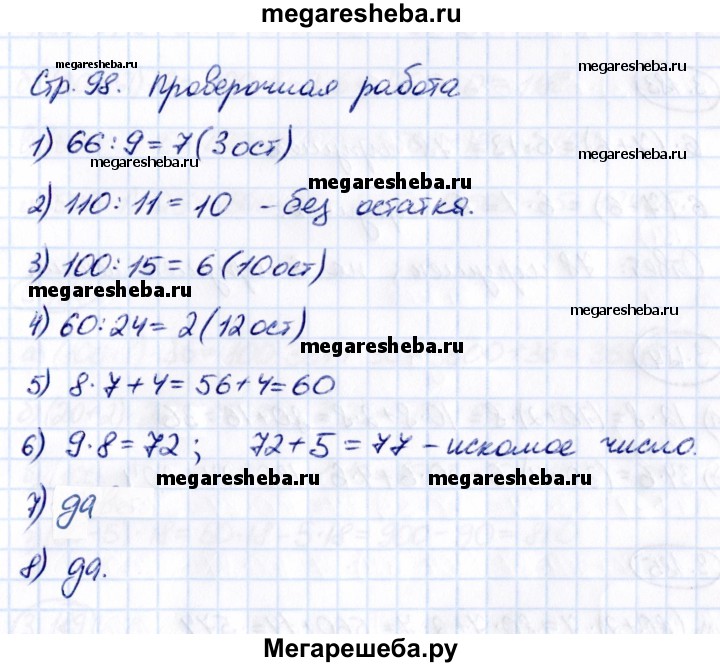 megaresheba.ru
megaresheba.ru
Стр. 98. Проверочная работа
megaresheba.ru
1) 66 : 9 = 7 (3 ост)
megaresheba.ru
megaresheba.ru
2) 110 : 11 = 10 - без остатка.
3) 100 : 15 = 6 (10 ост)
megaresheba.ru
megaresheba.ru
4) 60 : 24 = 2 (12 ост)
megaresheba.ru
5) 8 · 7 + 4 = 56 + 4 = 60
6) 9 · 8 = 72 ; 72 + 5 = 77 – искомое число.
megaresheba.ru
megaresheba.ru
7) да
8) да.
Мегарешеба.ру